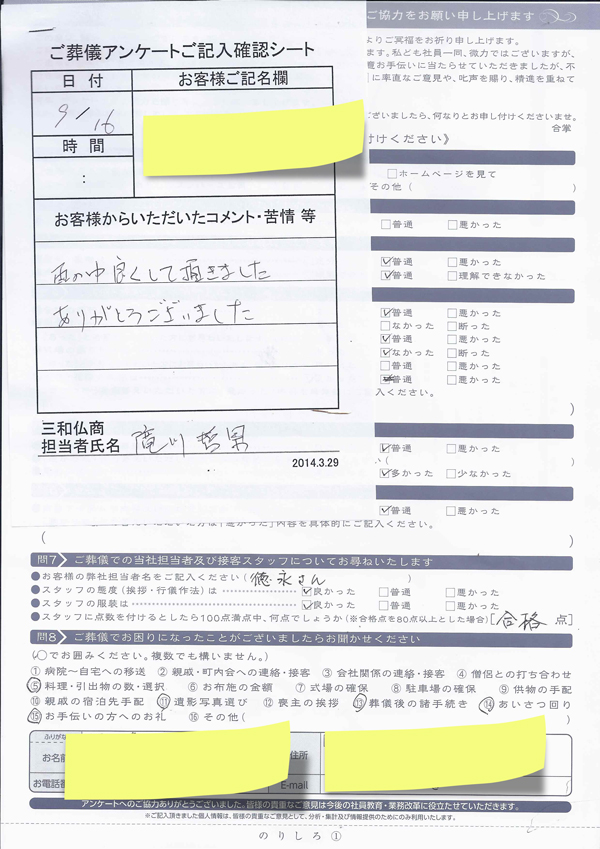 ご葬儀アンケートご記入確認シート
日 付
お客様ご記名欄
9/16
時 間
:
お客様からいただいたコメント・苦情 等
雨の中良くして頂きました
ありがとうございました
三和仏商
担当者氏名 滝川哲男
2014.3.29
ご協力をお願い申し上げます
よりご冥福をお祈り申し上げます。
ます。私ども社員一同、微力ではございますが、
儀お手伝いに当たらせていただきましたが、不
に率直なご意見や、叱声を賜り、精進を重ねて
ございましたら、何なりとお申し付けくださいませ。
合掌
付けください》
□ホームページを見て
その他( )
□普通 □悪かった
☑普通 □悪かった
☑普通 □理解できなかった
☑普通 □悪かった
□なかった □断った
☑普通 □悪かった
☑なかった □断った
□普通 □悪かった
普通 □悪かった
入ください。
)
☑普通 □悪かった
( )
☑多かった □少なかった
☑普通 □悪かった
「悪かった」内容を具体的にご記入ください。
( )
問7 ご葬儀での当社担当者及び接客スタッフについてお尋ねいたします
●お客様の弊社担当者名をご記入ください(徳永さん )
●スタッフの態度(挨拶・行儀作法)は ☑良かった □普通 □悪かった
●スタッフの服装は ☑良かった □普通 □悪かった
●スタッフに点数を付けるとしたら100点満点中、何点でしょうか(※合格点を80点以上とした場合)[合格 点]
問8 ご葬儀でお困りになったことがございましたらお聞かせください
(○でお囲みください。複数でも構いません。)
①病院〜自宅への移送 ②親戚・町内会への連絡・接客 ③会社関係の連絡・接客 ④僧侶との打ち合わせ
⑤料理・引出物の数・選択 ⑥お布施の金額 ⑦式場の確保 ⑧駐車場の確保 ⑨供物の手配
⑩親戚の宿泊先手配 ⑪遺影写真選び ⑫喪主の挨拶 ⑬葬儀後の諸手続き ⑭あいさつ回り
⑮お手伝いの方へのお礼 ⑯その他( )
ふりがな
お名前
住所
お電話番
E-mail
アンケートへのご協力ありがとうございました。皆様の貴重なご意見は今後の社員教育・業務改革に役立たせていただきます。
※ご記入頂きました個人情報は、皆様の貴重なご意見として、分析・集計及び情報提供のためにのみ利用いたします。
のりしろ①